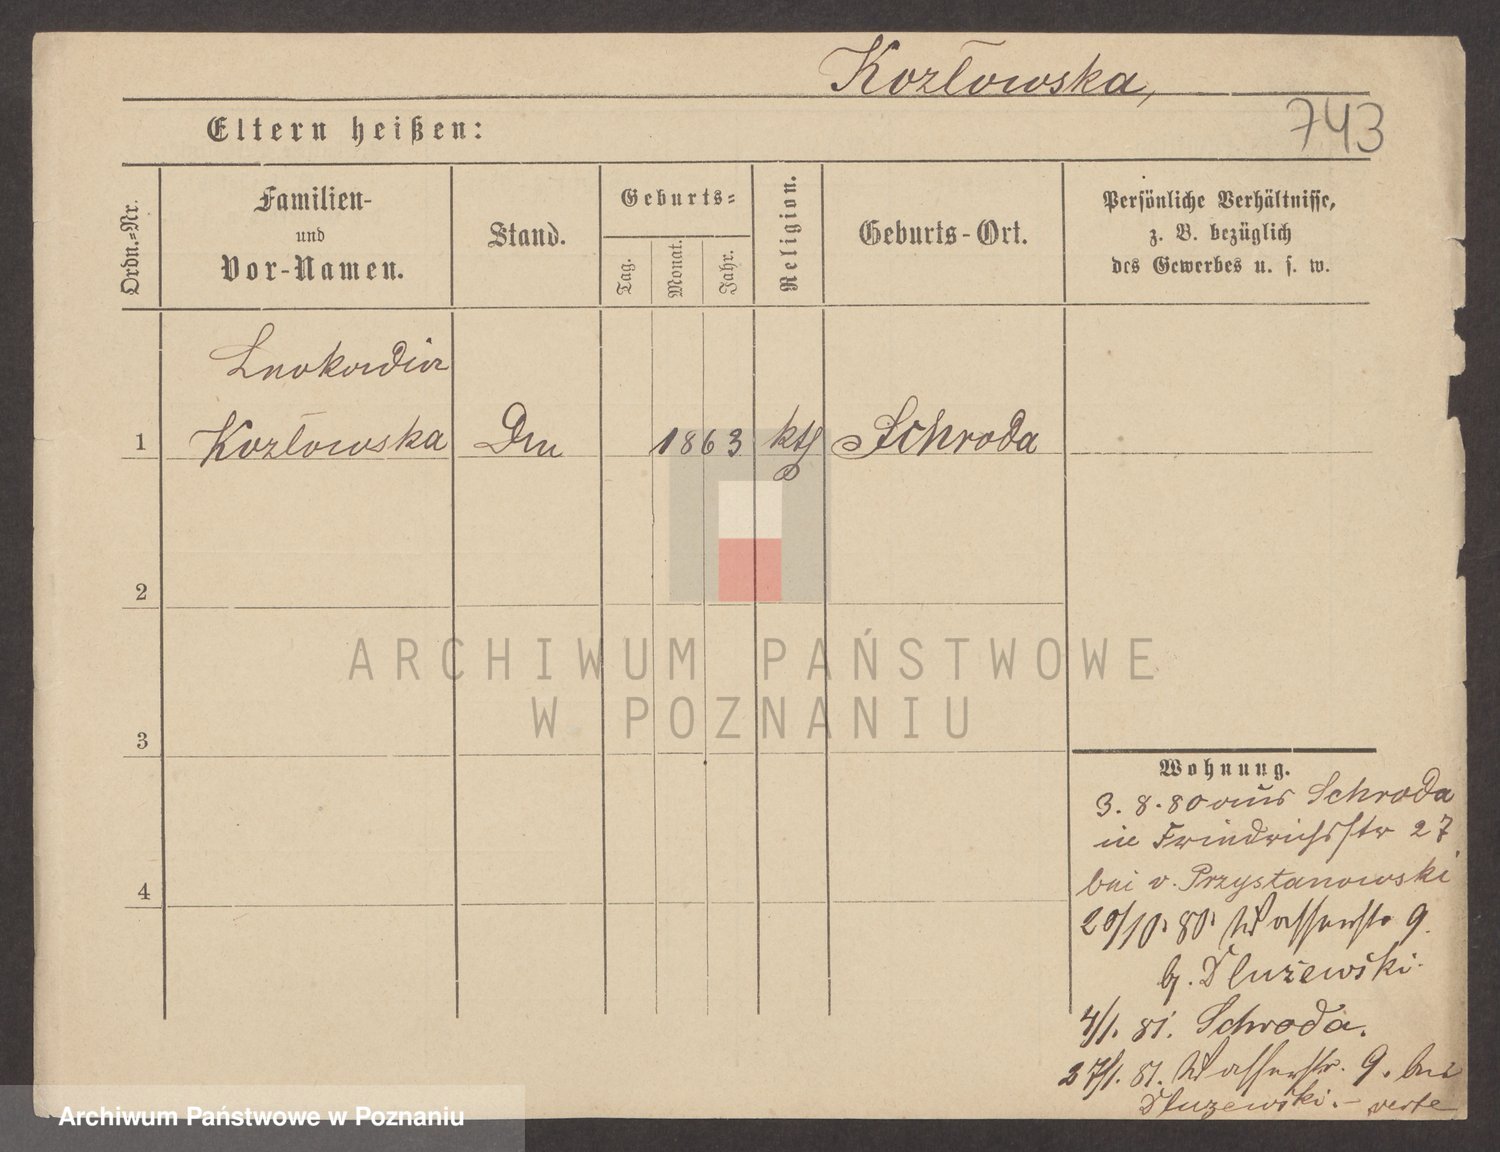 Kozłowska,
743
Eltern heißen:
Ordn.=Nr.
Familien-
und
Vor-Namen.
Stand.
Geburts=
Tag.
Monat.
Jahr.
Religion.
Geburts-Ort.
Persönliche Verhältnisse,
z. B. bezüglich
des Gewerbes u. s. w.
Leokardia
1 Kozłowska 1863 kth Schroda
2
3
4
ARCHIWUM PAŃSTWOWE
W POZNANIU
Wohnung.
3. 8. 80 aus Schroda
in Friedrichsstr 27
bei v. Przystanowski
20/10. 80. Wasserstr 9.
b. Dlużewski.
4/1. 81. Schroda.
27/1. 81. Wasserstr. 9. bei
Dluzewski. – verte
Archiwum Państwowe w Poznaniu